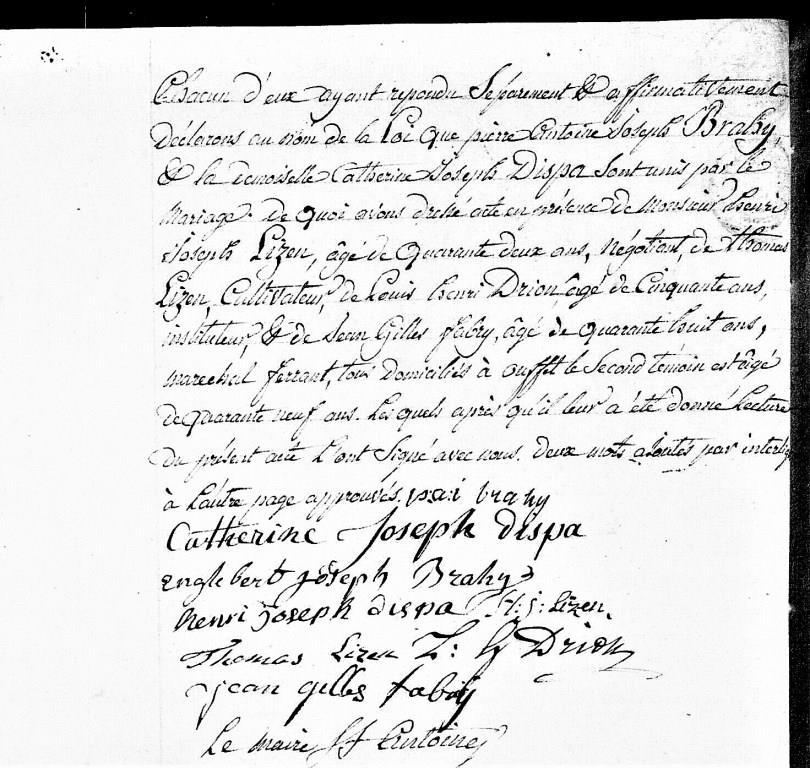 Chacun d'eux ayant repondu Séparement & affirmativement
Déclarons au nom de la Loi que pierre Antoine Joseph Brahy,
& la demoiselle Catherine Joseph Dispa sont unis par le
mariage. de quoi avons dressé acte en présence de Monsieur henri
Joseph Lizen, âgé de quarante deux ans, Négotiant, de thomas
Lizen, Cultivateur, de Louis henri Drion âgé de Cinquante ans,
instituteur, & de Jean Gilles fabry, âgé de quarante huit ans,
marechal ferrant, tous Domiciliés à ouffet le Second témoin est âgé
de quarante neuf ans. Lesquels après qu'il leur a été donné Lecture
du présent acte L'ont Signé avec nous. deux mots ajoutés par interlig
à L'autre page approuvés. p:a:i brahy
Catherine Joseph dispa
Englebert joseph Brahy
henri joseph dispa H: j: Lizen
Thomas Lizen L: h Drion
jean gilles fabry
Le maire Antoine